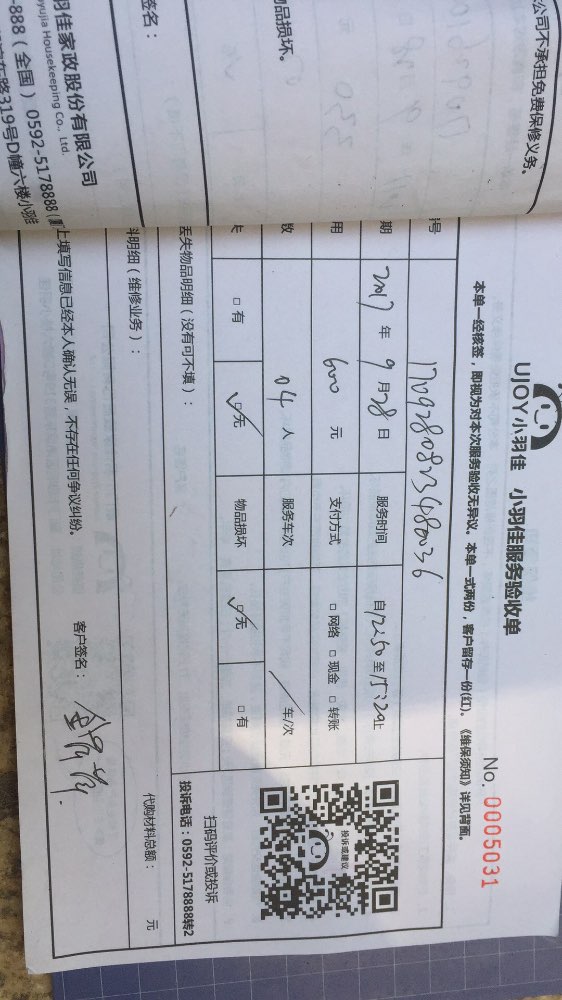 公司不承担免费保修义务。
物品损坏。
签名：
羽佳家政股份有限公司
oyujia Housekeeping Co., Ltd.
-888（全国）0592-5178888（
东路319号D幢六楼小羽
UJOY小羽佳 小羽佳服务验收单
No. 0005031
本单一经核签，即视为对本次服务验收无异议。本单一式两份，客户留存一份(红)。《维保须知》详见背面。
号 170928082348036
期 2017 年 9 月 28 日 服务时间 自12:50至15:20止
用 600 元 支付方式 □ 网络 □ 现金 □ 转账
数 04 人 服务车次 / 车/次
□ 有 ☑ 无 物品损坏 ☑ 无 □ 有
投诉或建议
扫码评价或投诉
投诉电话：0592-5178888转2
丢失物品明细（没有可不填）：
料明细（维修业务）： 代购材料总额： 元
上填写信息已经本人确认无误，不存在任何争议纠纷。 客户签名：